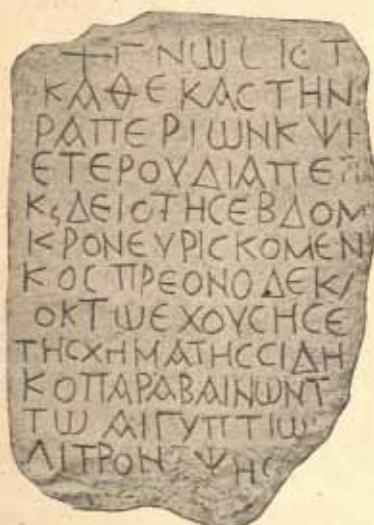 +ΓΝΩCΙCΤ
ΚΑΘΕΚΑCΤΗΝ
ΡΑΠΕΡΙΩΝΚΨΗ
ΕΤΕΡΟΥΔΙΑΠΕ
ΚϛΔΕΙΟΤΗCΕΒΔΟΜ
ΚΡΟΝΕΥΡΙCΚΟΜΕΝ
ΚΟCΠΡΕΟΝΟΔΕΚ/
ΟΚΤΩΕΧΟΥCΗCΕ
ΤΗCΧΗΜΑΤΗCCΙΔΗ
ΚΟΠΑΡΑΒΑΙΝΩΝΤ
ΤΩΑΙΓΥΠΤΙΩ
ΛΙΤΡΟΝΤΨΗC